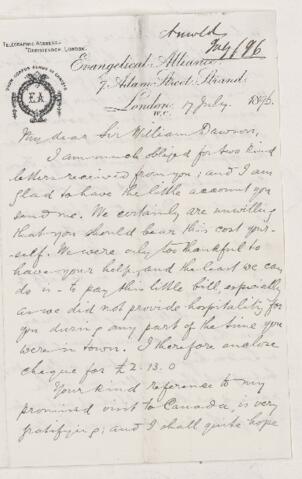 Arnold
July/96
TELEGRAPHIC ADDRESS
LONDON.
EA
Evangelical Alliance
7 Adam Street, Strand.
London 17 July. 1896.
W.C.
My dear Sir William Dawson,
I am much obliged for two kind
letters received from you; and I am
glad to have the little account you
send me. We certainly are unwilling
that you should bear this cost your-
self. We were only too thankful to
have your help, and the least we can
do is to pay this little bill, especially
as we did not provide hospitality for
you during any part of the time you
were in town. I therefore enclose
cheque for £2.13.0
Your kind reference to my
promised visit to Canada, is very
gratifying; and I shall quite hope